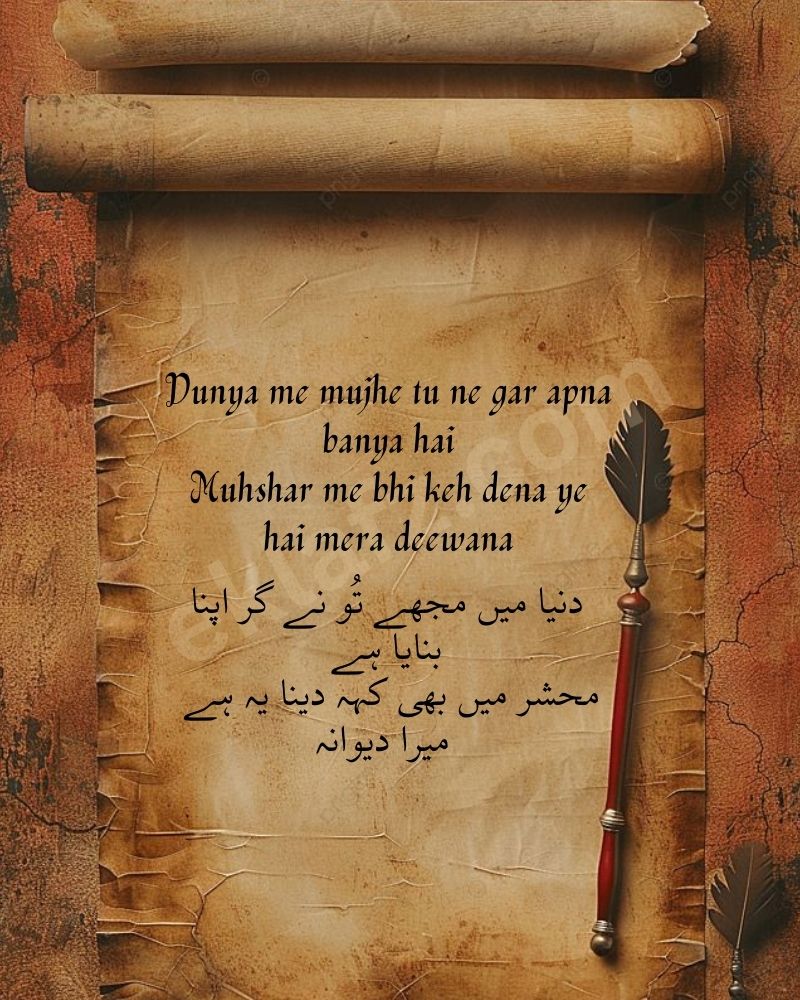 Dunya me mujhe tu ne gar apna
banya hai
Muhshar me bhi keh dena ye
hai mera deewana
دنیا میں مجھے تُو نے گر اپنا
بنایا ہے
محشر میں بھی کہہ دینا یہ ہے
میرا دیوانہ